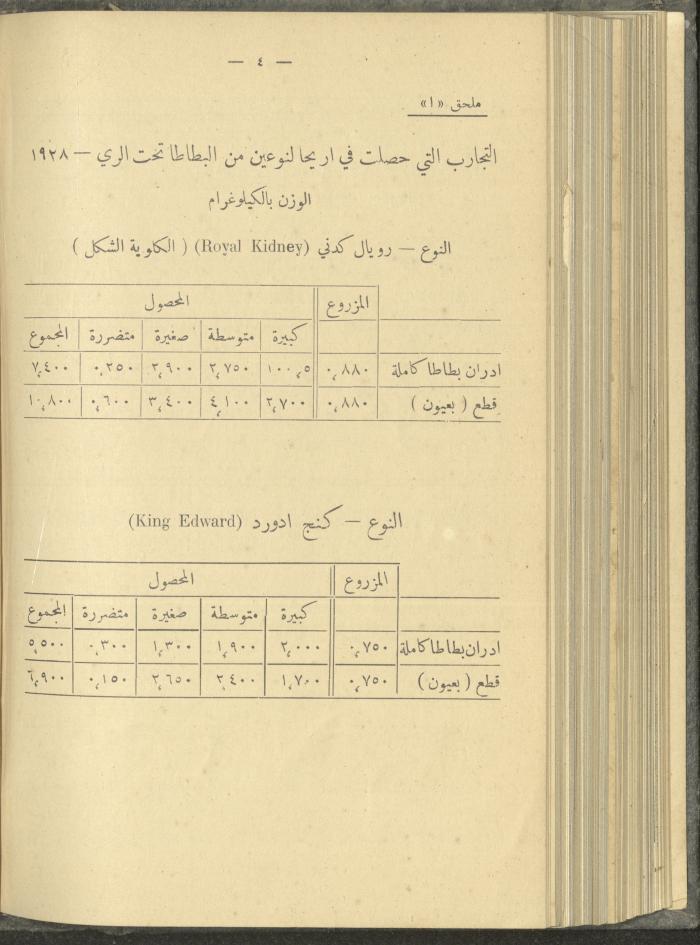 — ٤ —
ملحق «ا»
التجارب التي حصلت في اريحا لنوعين من البطاطا تحت الري — ١٩٢٨
الوزن بالكيلوغرام
النوع — رويال كدني (Royal Kidney) ( الكلوية الشكل )
المزروع المحصول
كبيرة متوسطة صغيرة متضررة المجموع
ادران بطاطا كاملة ٠,٨٨٠ ١٠٠,٥ ٢,٧٥٠ ٢,٩٠٠ ٠,٢٥٠ ٧,٤٠٠
قطع ( بعيون ) ٠,٨٨٠ ٢,٧٠٠ ٤,١٠٠ ٣,٤٠٠ ٠,٦٠٠ ١٠,٨٠٠
النوع — كنج ادورد (King Edward)
المزروع المحصول
كبيرة متوسطة صغيرة متضررة المجموع
ادران بطاطا كاملة ٠,٧٥٠ ٢,٠٠٠ ١,٩٠٠ ١,٣٠٠ ٠,٣٠٠ ٥,٥٠٠
قطع ( بعيون ) ٠,٧٥٠ ١,٧٠٠ ٢,٤٠٠ ٢,٦٥٠ ٠,١٥٠ ٦,٩٠٠